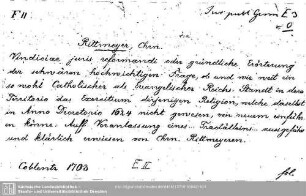 F II
Jus publ. Germ. E 3
= 0
Rittmeyer, Chrn.
Vindiciae juris reformandi oder gründliche Erörterung
der schwären hochwichtigen Frage, ob und wie weit ein
so wohl Catholischer als Evangelischer Reichs Standt in dess
Territorio das Exercitium derjenigen Religion, welche daselbst
in Anno Decretorio 1624 nicht gewesen, von neuem einführen
könne. Auff Veranlassung eines Tractätleins ausgeführt
und klärlich erwiesen von Chrn. Rittmeyeren.
Coblentz 1703
E II
fol.
Sächsische Landesbibliothek -
Staats- und Universitätsbibliothek Dresden